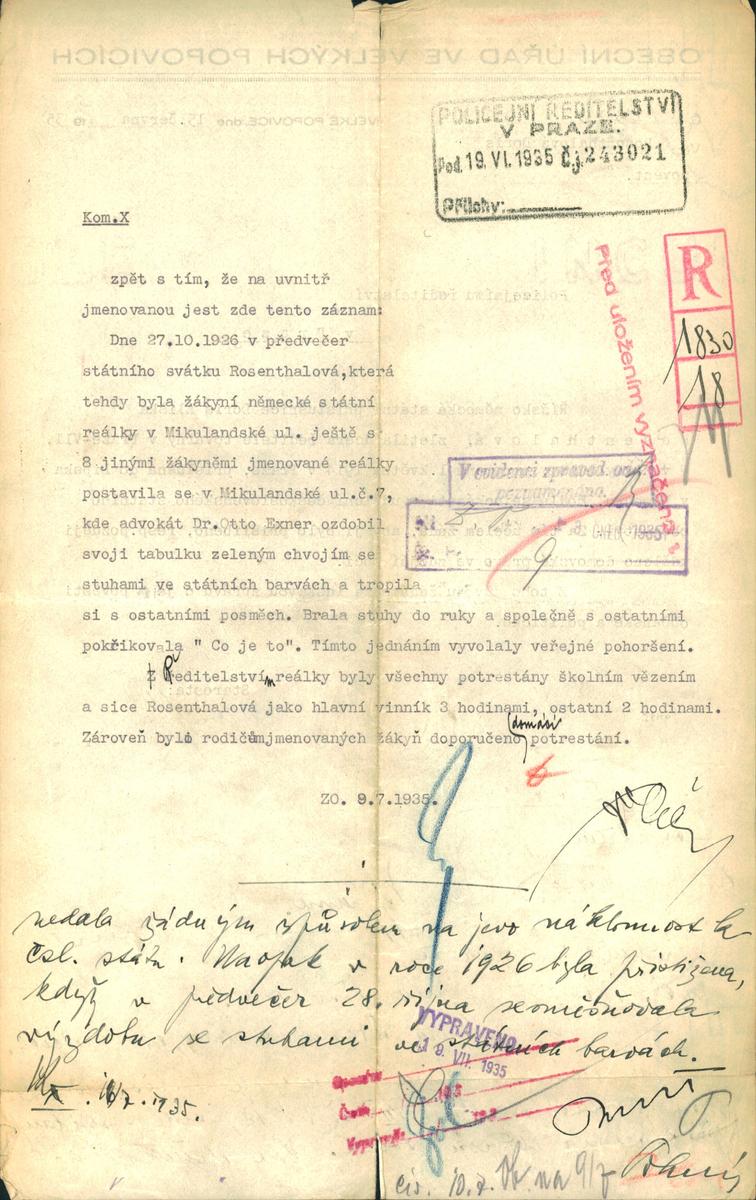 POLICEJNÍ ŘEDITELSTVÍ
V PRAZE.
Pod. 19. VI. 1935 Čj. 243021
Přílohy:
Kom.X
R
1830
18
Před uložením vyznačení
zpět s tím, že na uvnitř
jmenovanou jest zde tento záznam:
Dne 27.10.1926 v předvečer
státního svátku Rosenthalová,která
tehdy byla žákyní německé státní
reálky v Mikulandské ul. ještě s
8 jinými žákyněmi jmenované reálky
postavila se v Mikulandské ul.č.7,
kde advokát Dr.Otto Exner ozdobil
svoji tabulku zeleným chvojím se
stuhami ve státních barvách a tropila
si s ostatními posměch. Brala stuhy do ruky a společně s ostatními
pokřikovala " Co je to". Tímto jednáním vyvolaly veřejné pohoršení.
Ředitelstvím reálky byly všechny potrestány školním vězením
a sice Rosenthalová jako hlavní vinník 3 hodinami, ostatní 2 hodinami.
domácí
Zároveň bylo rodičům jmenovaných žákyň doporučeno potrestání.
V evidenci zpravod. odd.
poznamenáno.
1935
9
ZO. 9.7.1935.
nedala žádným způsobem na jevo náklonnost k
čsl. státu. Naopak v roce 1926 byla přistižena,
když v předvečer 28. října zesměšňovala
výzdobu se stuhami ve státních barvách.
VYPRAVENO
19. VII. 1935
7. 1935.
Opsáno
Četli
Vypraveno
10.7.
na 9/7